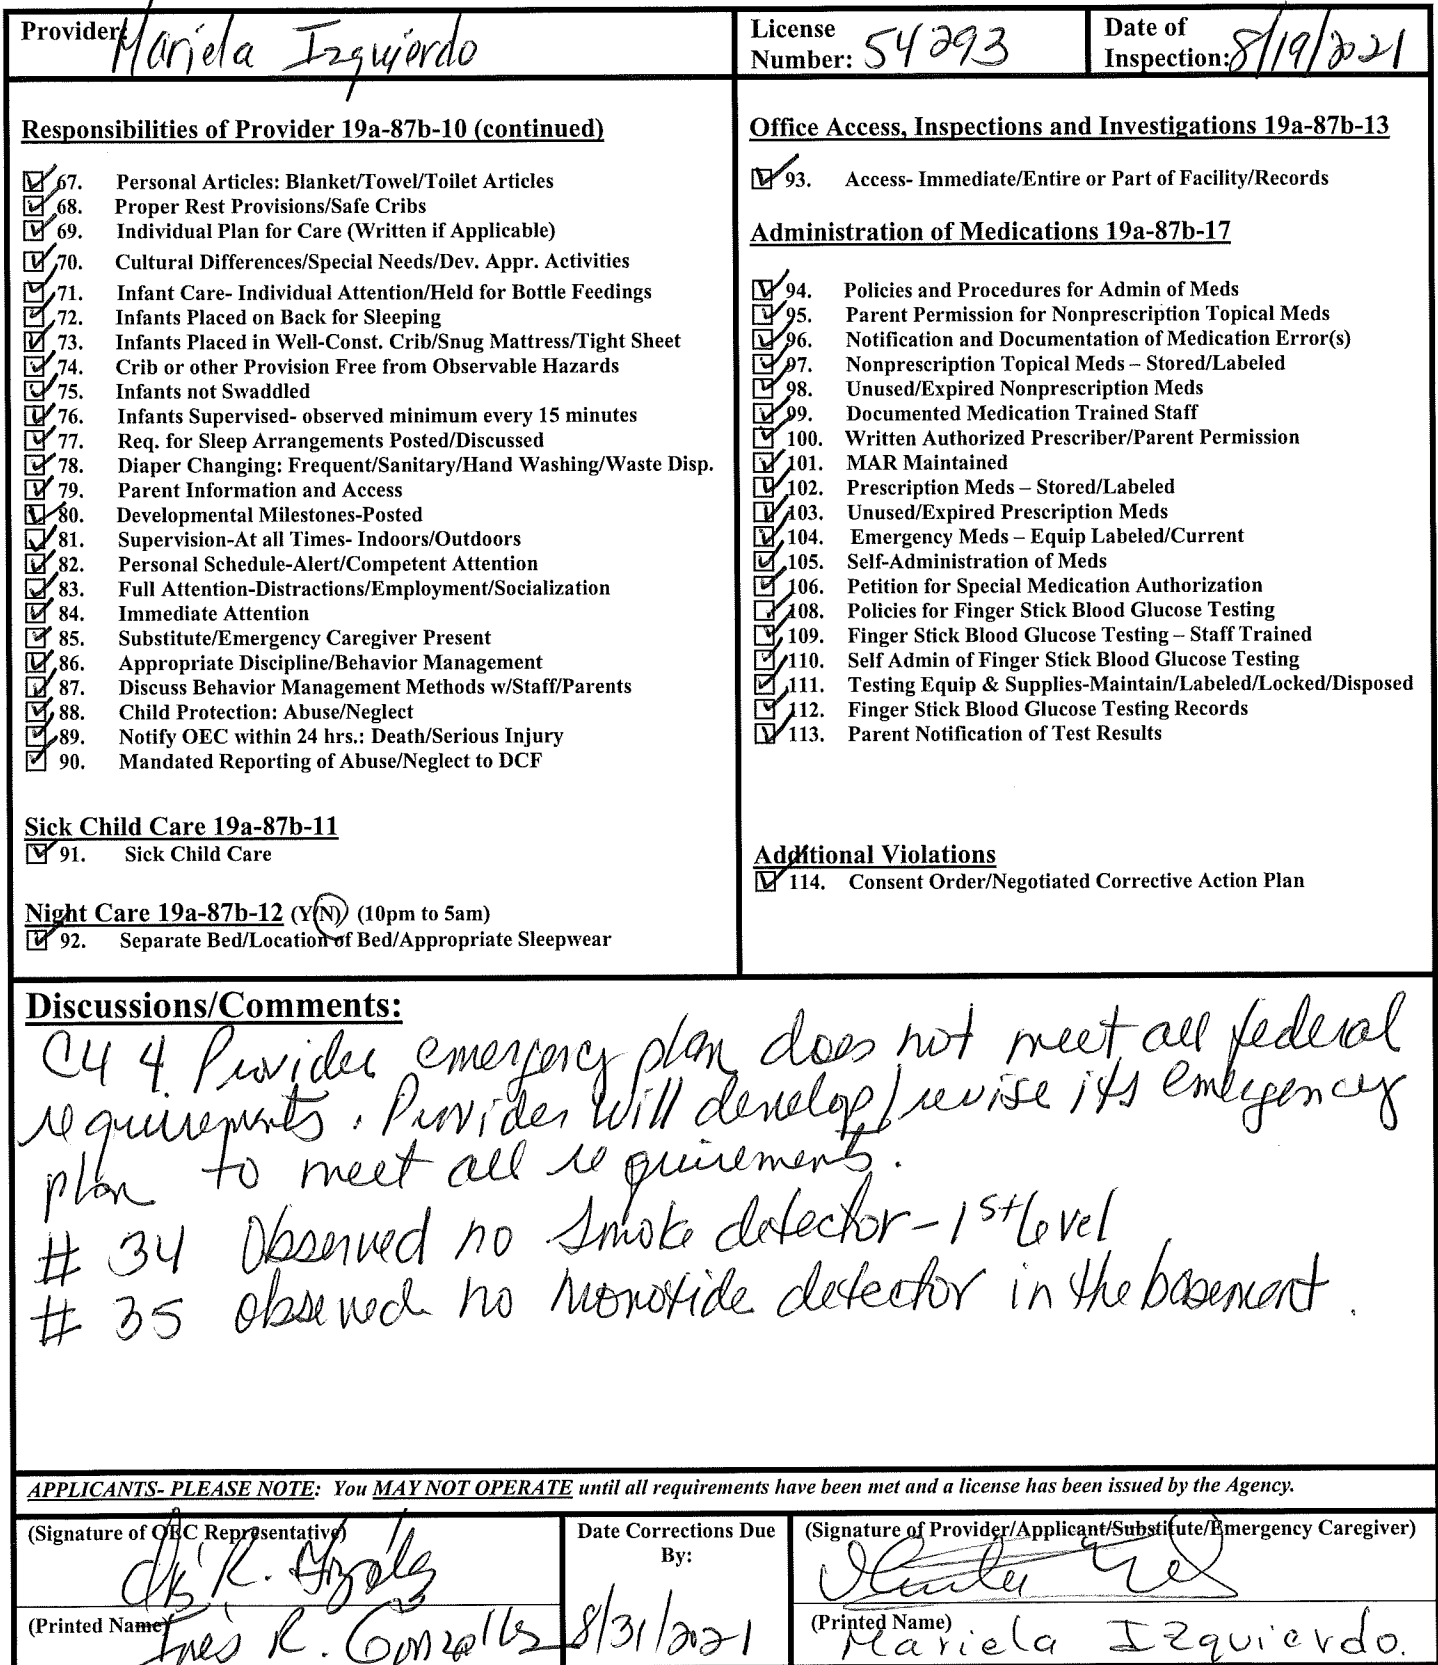 Provider: Mariela Izquierdo
License Number: 54293
Date of Inspection: 8/19/2021
Responsibilities of Provider 19a-87b-10 (continued)
67. Personal Articles: Blanket/Towel/Toilet Articles
68. Proper Rest Provisions/Safe Cribs
69. Individual Plan for Care (Written if Applicable)
70. Cultural Differences/Special Needs/Dev. Appr. Activities
71. Infant Care- Individual Attention/Held for Bottle Feedings
72. Infants Placed on Back for Sleeping
73. Infants Placed in Well-Const. Crib/Snug Mattress/Tight Sheet
74. Crib or other Provision Free from Observable Hazards
75. Infants not Swaddled
76. Infants Supervised- observed minimum every 15 minutes
77. Req. for Sleep Arrangements Posted/Discussed
78. Diaper Changing: Frequent/Sanitary/Hand Washing/Waste Disp.
79. Parent Information and Access
80. Developmental Milestones-Posted
81. Supervision-At all Times- Indoors/Outdoors
82. Personal Schedule-Alert/Competent Attention
83. Full Attention-Distractions/Employment/Socialization
84. Immediate Attention
85. Substitute/Emergency Caregiver Present
86. Appropriate Discipline/Behavior Management
87. Discuss Behavior Management Methods w/Staff/Parents
88. Child Protection: Abuse/Neglect
89. Notify OEC within 24 hrs.: Death/Serious Injury
90. Mandated Reporting of Abuse/Neglect to DCF
Sick Child Care 19a-87b-11
91. Sick Child Care
Night Care 19a-87b-12 (Y/N) (10pm to 5am)
92. Separate Bed/Location of Bed/Appropriate Sleepwear
Office Access, Inspections and Investigations 19a-87b-13
93. Access- Immediate/Entire or Part of Facility/Records
Administration of Medications 19a-87b-17
94. Policies and Procedures for Admin of Meds
95. Parent Permission for Nonprescription Topical Meds
96. Notification and Documentation of Medication Error(s)
97. Nonprescription Topical Meds – Stored/Labeled
98. Unused/Expired Nonprescription Meds
99. Documented Medication Trained Staff
100. Written Authorized Prescriber/Parent Permission
101. MAR Maintained
102. Prescription Meds – Stored/Labeled
103. Unused/Expired Prescription Meds
104. Emergency Meds – Equip Labeled/Current
105. Self-Administration of Meds
106. Petition for Special Medication Authorization
108. Policies for Finger Stick Blood Glucose Testing
109. Finger Stick Blood Glucose Testing – Staff Trained
110. Self Admin of Finger Stick Blood Glucose Testing
111. Testing Equip & Supplies-Maintain/Labeled/Locked/Disposed
112. Finger Stick Blood Glucose Testing Records
113. Parent Notification of Test Results
Additional Violations
114. Consent Order/Negotiated Corrective Action Plan
Discussions/Comments:
C44 Provider emergency plan does not meet all federal
requirements. Provider will develop/revise its emergency
plan to meet all requirements.
# 34 Observed no smoke detector - 1st level
# 35 observed no monoxide detector in the basement.
APPLICANTS- PLEASE NOTE: You MAY NOT OPERATE until all requirements have been met and a license has been issued by the Agency.
(Signature of OEC Representative)
(Printed Name) Inés R. Gonzalez
Date Corrections Due
By:
8/31/2021
(Signature of Provider/Applicant/Substitute/Emergency Caregiver)
(Printed Name) Mariela Izquierdo.